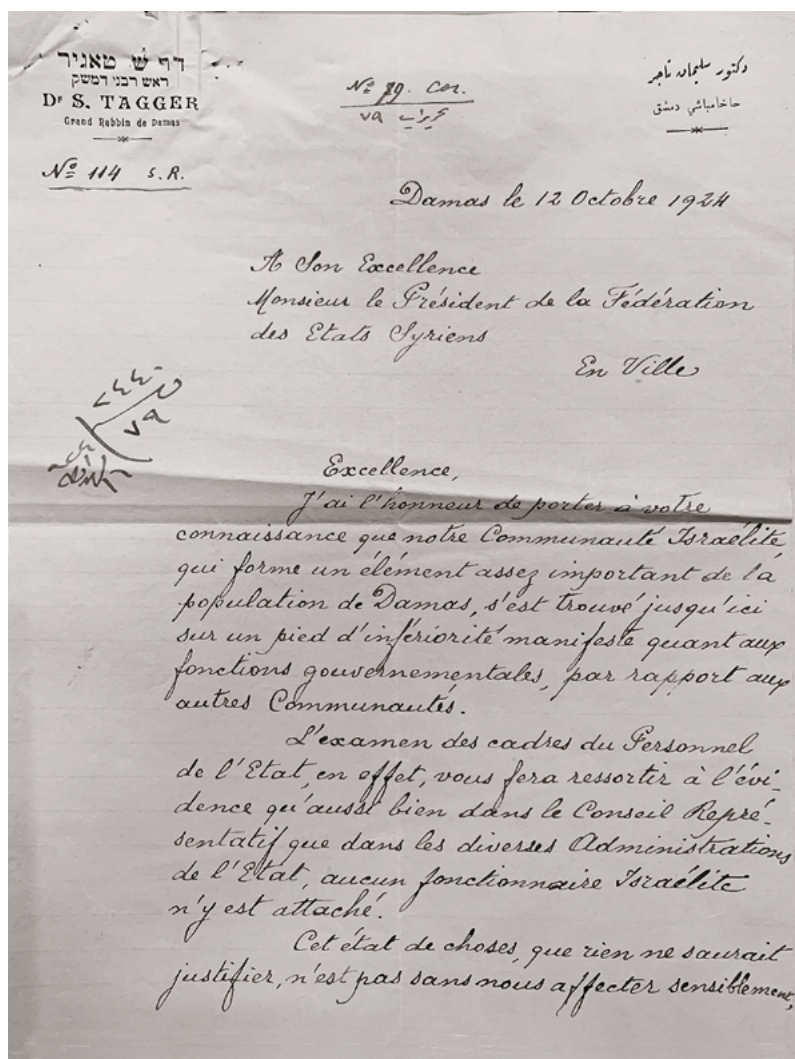 דר ש טאגיר
ראש רבני דמשק
Dr S. TAGGER
Grand Rabbin de Damas
No 114 S. R.
No 79. Cor.
٧٩
دكتور سليمان تاجر
حاخامباشي دمشق
Damas le 12 Octobre 1924
A Son Excellence
Monsieur le Président de la Fédération
des Etats Syriens
En Ville
٧٩
Excellence,
J'ai l'honneur de porter à votre
connaissance que notre Communauté Israélite,
qui forme un élément assez important de la
population de Damas, s'est trouvé jusqu'ici
sur un pied d'infériorité manifeste quant aux
fonctions gouvernementales, par rapport aux
autres Communautés.
L'examen des cadres du Personnel
de l'Etat, en effet, vous fera ressortir à l'évi-
dence qu'aussi bien dans le Conseil Repré-
sentatif que dans les diverses Administrations
de l'Etat, aucun fonctionnaire Israélite
n'y est attaché.
Cet état de choses, que rien ne saurait
justifier, n'est pas sans nous affecter sensiblement,